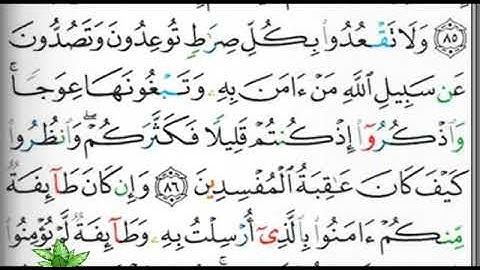 ٨٥ وَلَا تَقۡعُدُواْ بِكُلِّ صِرَٰطٖ تُوعِدُونَ وَتَصُدُّونَ
عَن سَبِيلِ ٱللَّهِ مَنۡ ءَامَنَ بِهِۦ وَتَبۡغُونَهَا عِوَجٗاۚ
وَٱذۡكُرُوٓاْ إِذۡ كُنتُمۡ قَلِيلٗا فَكَثَّرَكُمۡۖ وَٱنظُرُواْ
كَيۡفَ كَانَ عَٰقِبَةُ ٱلۡمُفۡسِدِينَ ٨٦ وَإِن كَانَ طَآئِفَةٞ
مِّنكُمۡ ءَامَنُواْ بِٱلَّذِيٓ أُرۡسِلۡتُ بِهِۦ وَطَآئِفَةٞ لَّمۡ يُؤۡمِنُواْ